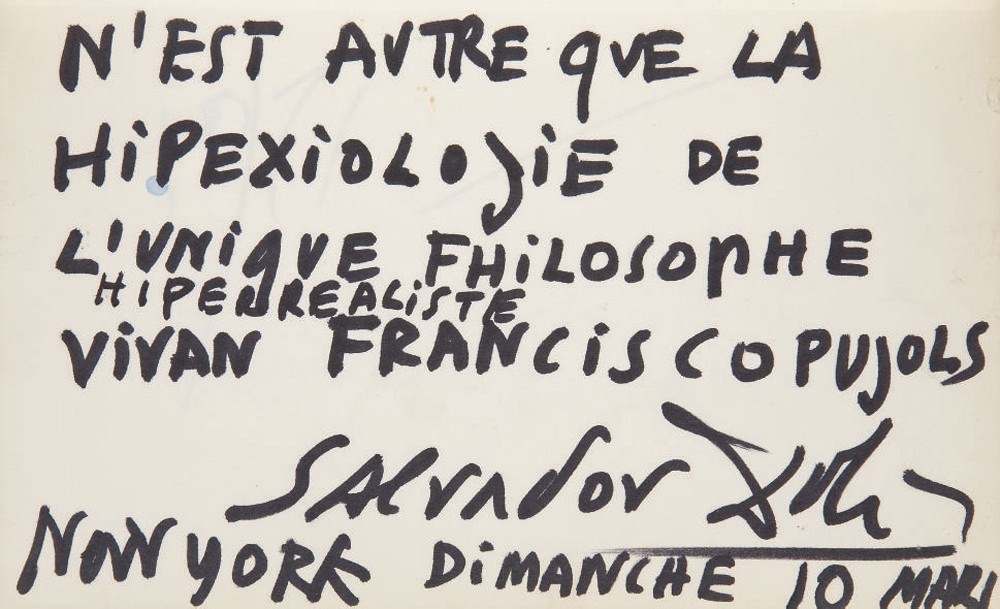 N'EST AUTRE QUE LA
HiPEXiOLOJiE DE
L'UNiQUE FHiLOSOPHE
HIPERREALiSTE
ViVAN FRANCiSCO PUJOLS
SALvAdor Dali
NOW YORK DiMANCHE 10 MARS